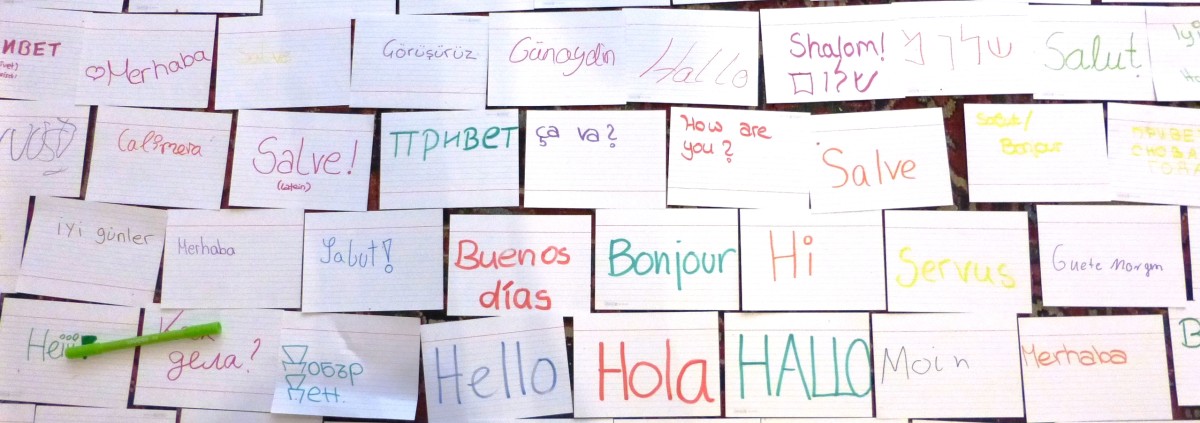 ИВЕТ
Merhaba
Salve
Görüşürüz
Günaydin
Hallo
Shalom!
שלום
Salut!
iyi
Calimera
Salve!
(Latein)
ПРИВЕТ
ça va?
How are
you?
Salve
Salut/
Bonjour
iyi günler
Merhaba
Salut!
Buenos
días
Bonjour
Hi
Servus
Guete Morgen
Hej
дела?
Добър
Ден.
Hello
Hola
HALLO
Moin
Merhaba